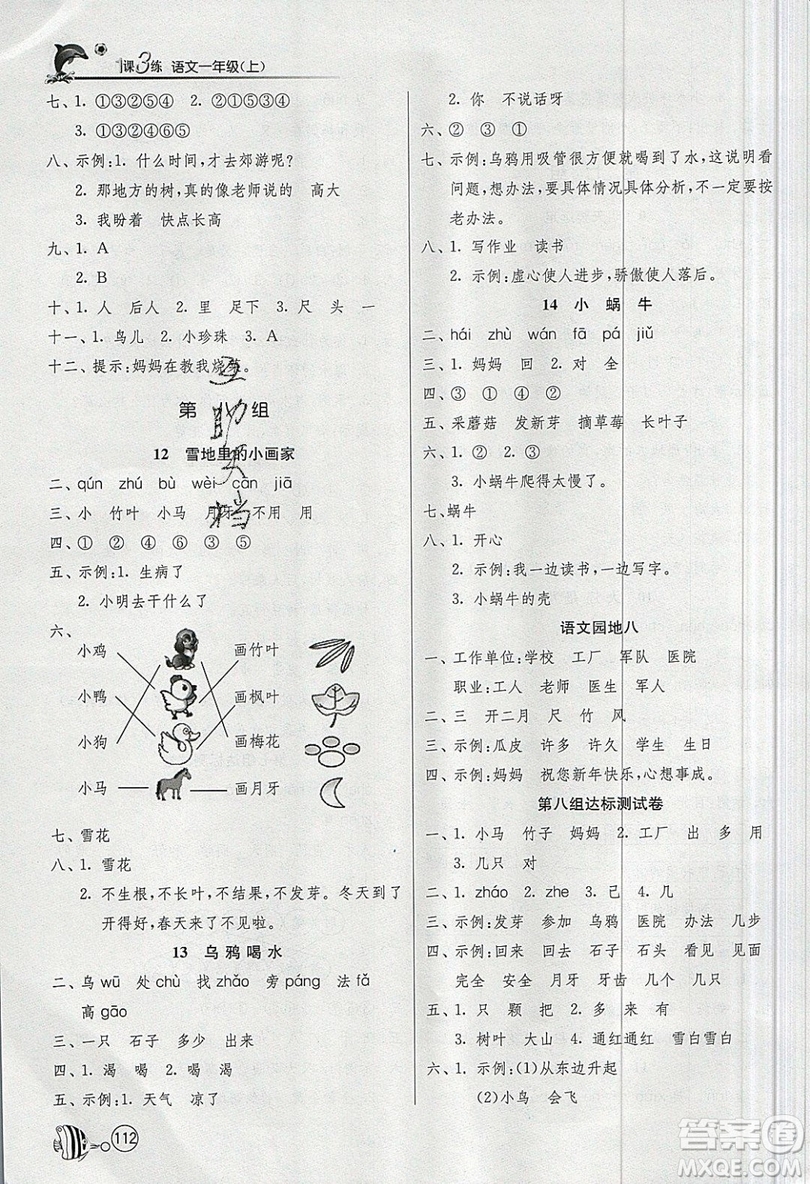 1课3练 语文一年级(上)
七、1. ①③②⑤④ 2. ②①⑤③④
3. ①③②④⑥⑤
八、示例:1. 什么时间,才去郊游呢?
2. 那地方的树,真的像老师说的 高大
3. 我盼着 快点长高
九、1. A
2. B
十、1. 人 后人 2. 里 足下 3. 尺 头 一
十一、1. 鸟儿 2. 小珍珠 3. A
十二、提示:妈妈在教我烧菜。
第 组
12 雪地里的小画家
二、qún zhú bù wèi cān jiā
三、小 竹叶 小马 月牙 不用 用
四、① ② ④ ⑥ ③ ⑤
五、示例:1. 生病了
2. 小明去干什么了
六、
小鸡 画竹叶
小鸭 画枫叶
小狗 画梅花
小马 画月牙
七、雪花
八、1. 雪花
2. 不生根,不长叶,不结果,不发芽。冬天到了
开得好,春天来了不见啦。
13 乌鸦喝水
二、乌 wū 处 chù 找 zhǎo 旁 páng 法 fǎ
高 gāo
三、一只 石子 多少 出来
四、1. 渴 喝 2. 喝 渴
五、示例:1. 天气 凉了
112
2. 你 不说话呀
六、② ③ ①
七、示例:乌鸦用吸管很方便就喝到了水,这说明看
问题,想办法,要具体情况具体分析,不一定要按
老办法。
八、1. 写作业 读书
2. 示例:虚心使人进步,骄傲使人落后。
14 小 蜗 牛
二、hái zhù wán fā pá jiǔ
三、1. 妈妈 回 2. 对 全
四、③ ① ④ ②
五、采蘑菇 发新芽 摘草莓 长叶子
六、1. ① 2. ② 3. ②
3. 小蜗牛爬得太慢了。
七、蜗牛
八、1. 开心
2. 示例:我一边读书,一边写字。
3. 小蜗牛的壳
语文园地八
一、工作单位:学校 工厂 军队 医院
职业:工人 老师 医生 军人
二、三 开二月 尺 竹 风
三、示例:瓜皮 许多 许久 学生 生日
四、示例:妈妈 祝您新年快乐,心想事成。
第八组达标测试卷
一、1. 小马 竹子 妈妈 2. 工厂 出 多 用
3. 几只 对
二、1. zháo 2. zhe 3. 己 4. 几
三、示例:发芽 参加 乌鸦 医院 办法 几步
四、示例:回来 回去 石子 石头 看见 见面
完全 安全 月牙 牙齿 多少 许多
五、1. 只 颗 把 2. 多 来 少
3. 树叶 大山 4. 通红通红 雪白雪白
六、1. 示例:(1)从东边升起
(2)小鸟 会飞
互助文档
答案圈
MXQE.COM